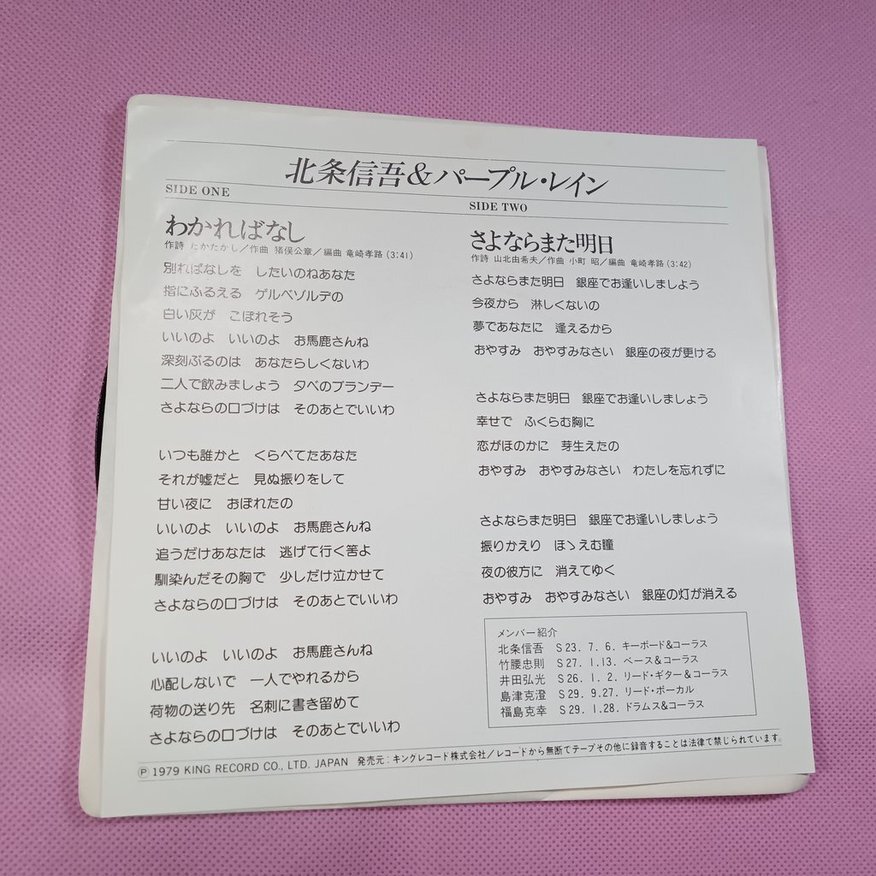 北条信吾&パープル・レイン
SIDE ONE
わかればなし
作詩 たかたかし／作曲 猪俣公章／編曲 竜崎孝路 (3:41)
別ればなしを したいのねあなた
指にふるえる ゲルベゾルテの
白い灰が こぼれそう
いいのよ いいのよ お馬鹿さんね
深刻ぶるのは あなたらしくないわ
二人で飲みましょう 夕べのブランデー
さよならの口づけは そのあとでいいわ
いつも誰かと くらべてたあなた
それが嘘だと 見ぬ振りをして
甘い夜に おぼれたの
いいのよ いいのよ お馬鹿さんね
追うだけあなたは 逃げて行く筈よ
馴染んだその胸で 少しだけ泣かせて
さよならの口づけは そのあとでいいわ
いいのよ いいのよ お馬鹿さんね
心配しないで 一人でやれるから
荷物の送り先 名刺に書き留めて
さよならの口づけは そのあとでいいわ
SIDE TWO
さよならまた明日
作詩 山北由希夫／作曲 小町 昭／編曲 竜崎孝路 (3:42)
さよならまた明日 銀座でお逢いしましょう
今夜から 淋しくないの
夢であなたに 逢えるから
おやすみ おやすみなさい 銀座の夜が更ける
さよならまた明日 銀座でお逢いしましょう
幸せで ふくらむ胸に
恋がほのかに 芽生えたの
おやすみ おやすみなさい わたしを忘れずに
さよならまた明日 銀座でお逢いしましょう
振りかえり ほゝえむ瞳
夜の彼方に 消えてゆく
おやすみ おやすみなさい 銀座の灯が消える
メンバー紹介
北条信吾 S23. 7. 6. キーボード&コーラス
竹腰忠則 S27. 1.13. ベース&コーラス
井田弘光 S26. 1. 2. リード・ギター&コーラス
島津克澄 S29. 9.27. リード・ボーカル
福島克幸 S29. 1.28. ドラムス&コーラス
Ⓟ 1979 KING RECORD CO., LTD. JAPAN 発売元：キングレコード株式会社／レコードから無断でテープその他に録音することは法律で禁じられています。